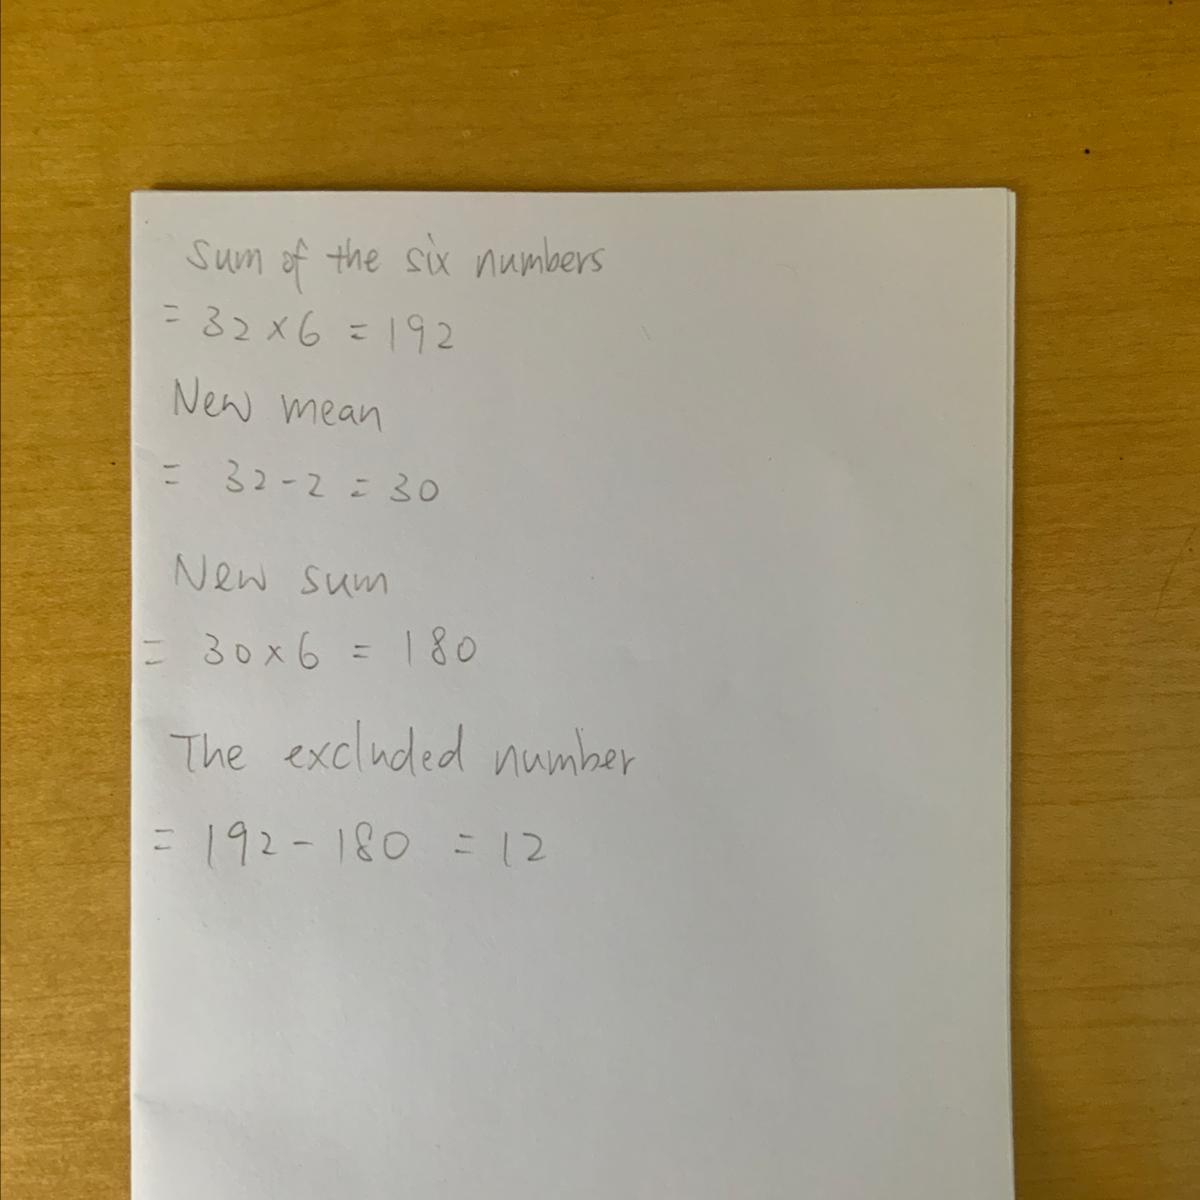 Sum of the six numbers
= 32 × 6 = 192
New mean
= 32 - 2 = 30
New sum
= 30 × 6 = 180
The excluded number
= 192 - 180 = 12